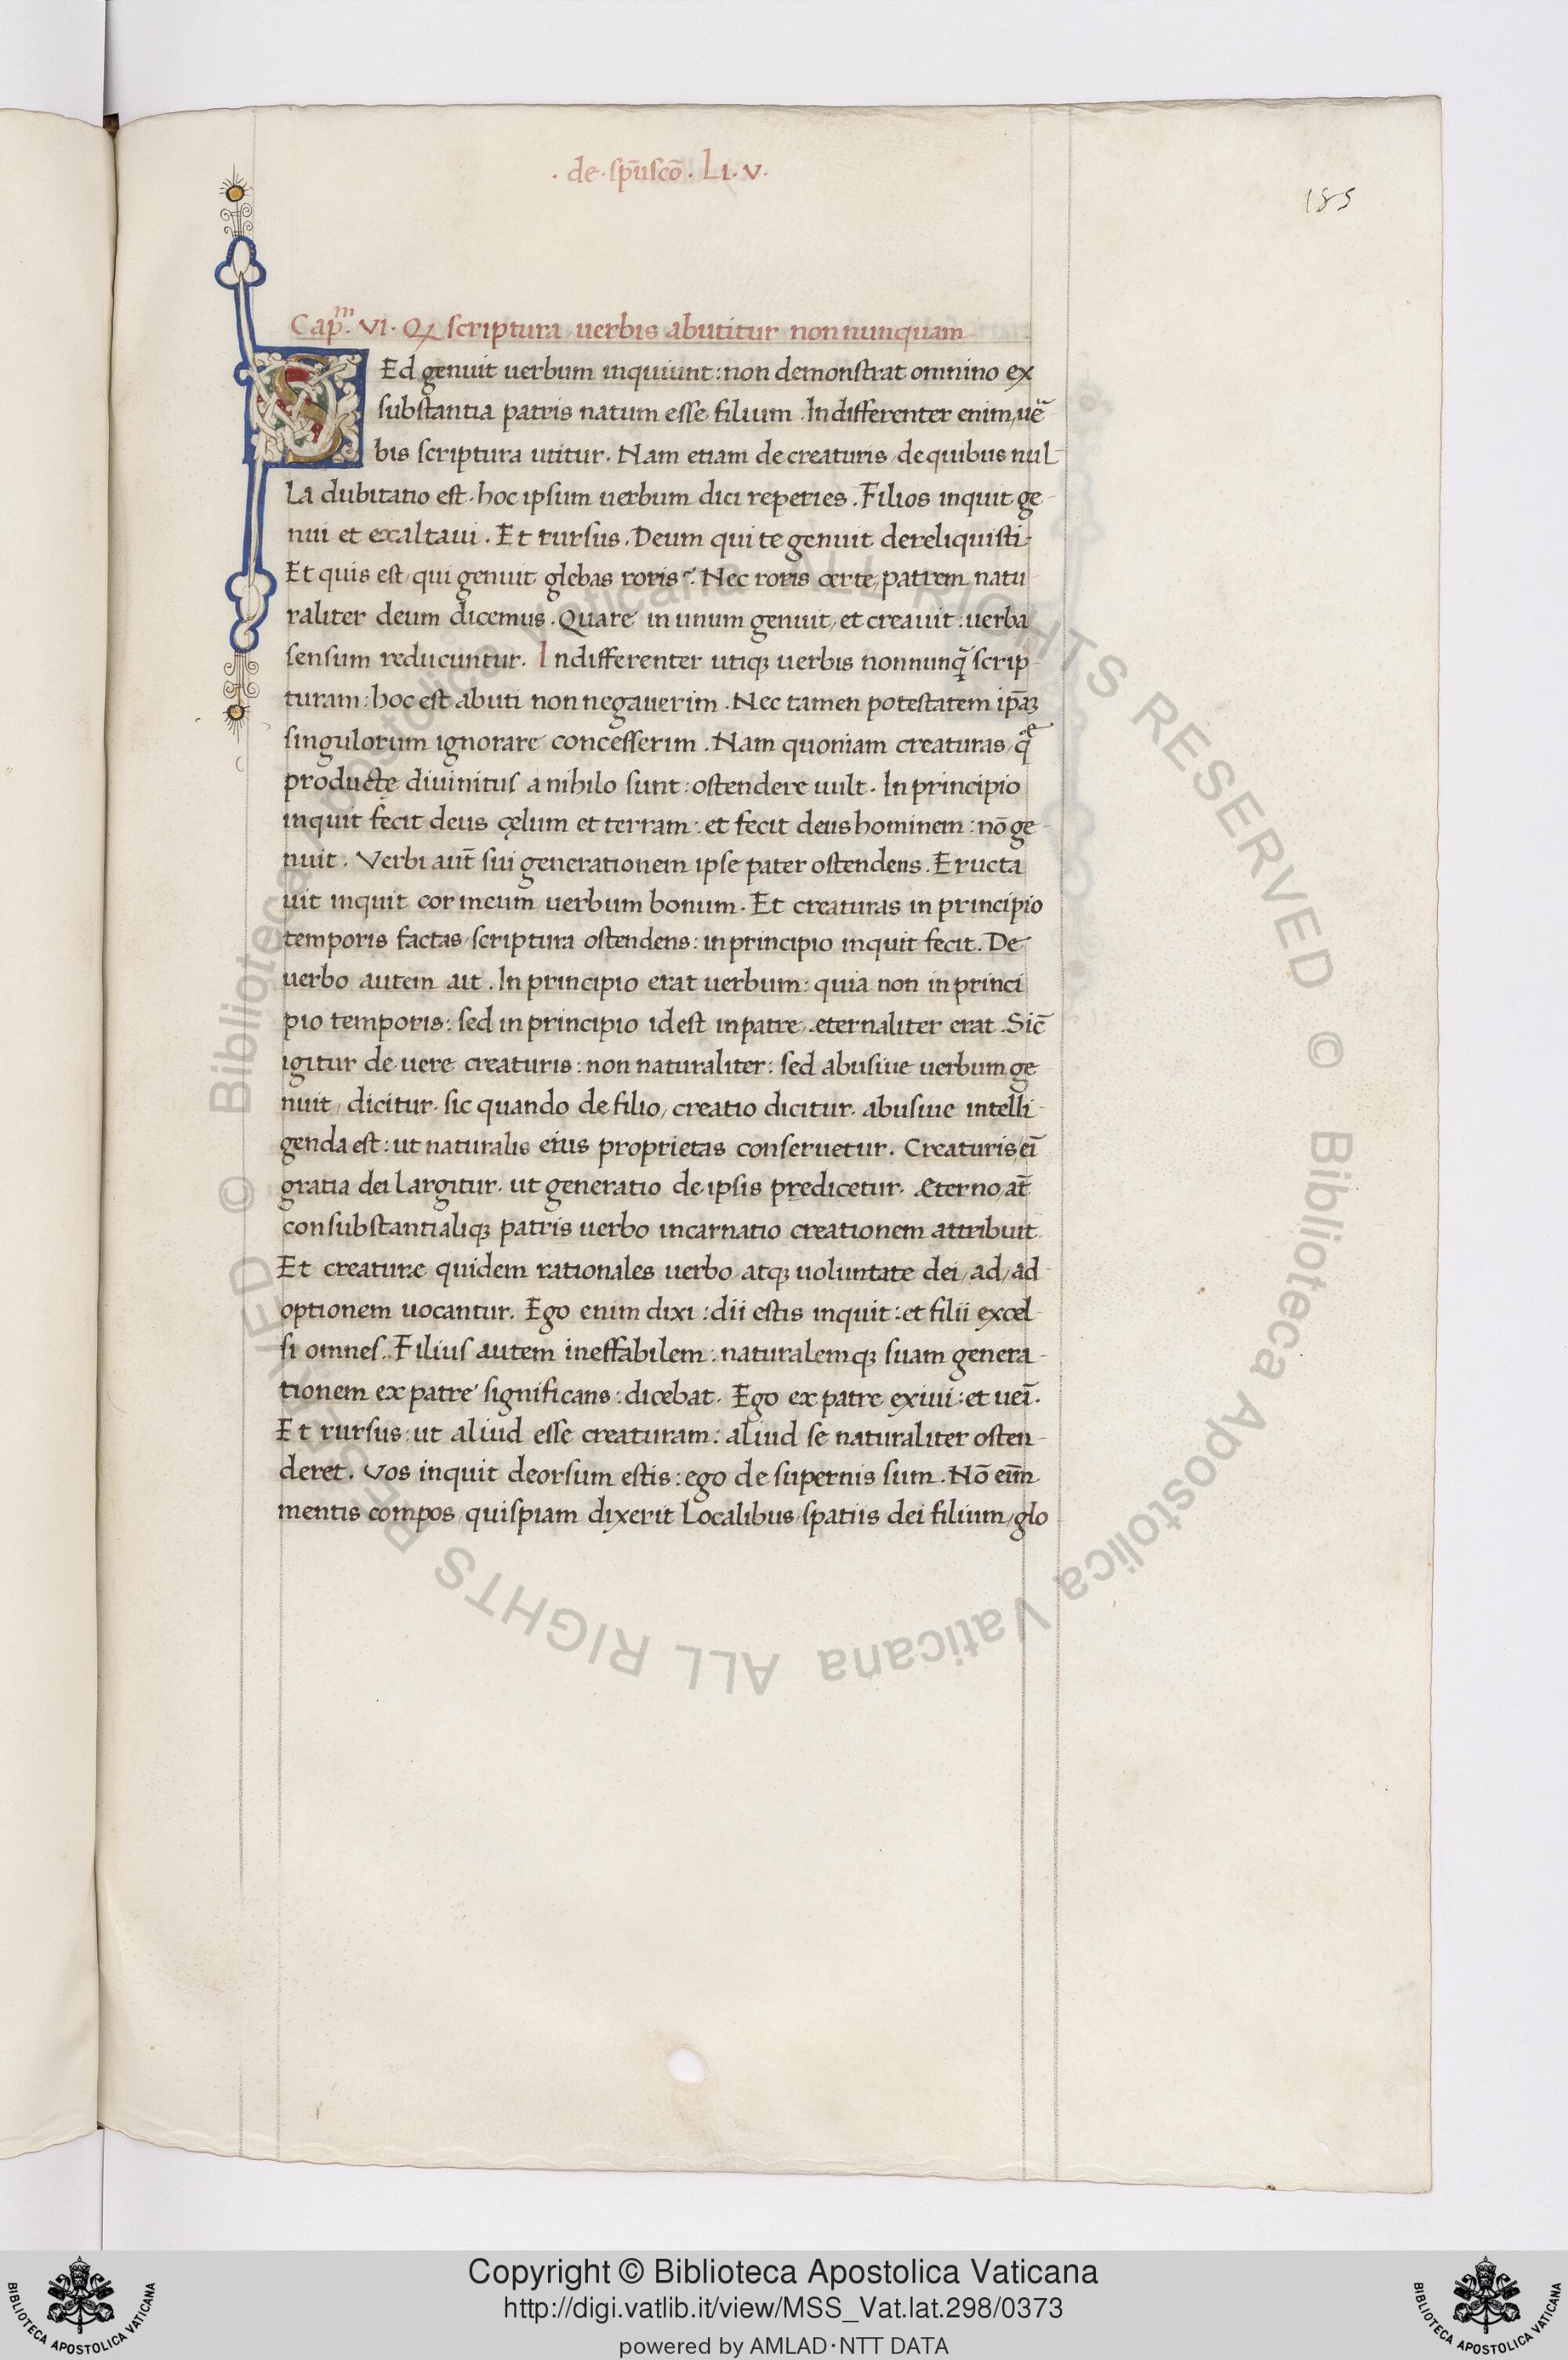 · de · sp̄u scō · Li · v ·
185
Cap.ᵐ VI · Qꝫ scriptura uerbis abutitur non nunquam
SEd genuit uerbum inquiunt: non demonstrat omnino ex
substantia patris natum esse filium. Indifferenter enim uē
bis scriptura utitur. Nam etiam de creaturis de quibus nul-
la dubitatio est. hoc ipsum uerbum dici reperies. Filios inquit ge-
nui et exaltaui. Et rursus. Deum qui te genuit dereliquisti.
Et quis est qui genuit glebas roris? Nec roris certe patrem natu-
raliter deum dicemus. Quare in unum genuit, et creauit: uerba
sensum reducuntur. Indifferenter utiqꝫ uerbis nonnunq̄ scrip-
turam: hoc est abuti non negauerim. Nec tamen potestatem ip̄aꝝ
singulorum ignorare concesserim. Nam quoniam creaturas, q̄
productę diuinitus a nihilo sunt: ostendere uult. In principio
inquit fecit deus cęlum et terram: et fecit deus hominem: nō ge-
nuit. Verbi aut̄ sui generationem ipse pater ostendens. Eructa
uit inquit cor meum uerbum bonum. Et creaturas in principio
temporis factas scriptura ostendens: in principio inquit fecit. De
uerbo autem ait. In principio erat uerbum: quia non in princi
pio temporis: sed in principio id est in patre æternaliter erat. Sic̄
igitur de uere creaturis: non naturaliter: sed abusiue uerbum ge-
nuit, dicitur. sic quando de filio, creatio dicitur. abusiue intelli-
genda est: ut naturalis eius proprietas conseruetur. Creaturis, ei̅
gratia dei largitur. ut generatio de ipsis prędicetur. Æterno, at̄
consubstantialiqꝫ patris uerbo incarnatio creationem attribuit.
Et creaturæ quidem rationales uerbo atqꝫ uoluntate dei, ad, ad-
optionem uocantur. Ego enim dixi: dii estis inquit: et filii excel-
si omnes. Filius autem ineffabilem: naturalemqꝫ suam genera-
tionem ex patre significans: dicebat. Ego ex patre exiui: et uei̅.
Et rursus: ut aliud esse creaturam: aliud se naturaliter osten-
deret. Vos inquit deorsum estis: ego de supernis sum. Nō ei̅m
mentis compos quispiam dixerit localibus spatiis dei filium, glo
© Biblioteca Apostolica Vaticana ALL RIGHTS RESERVED © Biblioteca Apostolica Vaticana ALL RIGHTS RESERVED
BIBLIOTECA APOSTOLICA VATICANA
Copyright © Biblioteca Apostolica Vaticana
http://digi.vatlib.it/view/MSS_Vat.lat.298/0373
powered by AMLAD·NTT DATA
BIBLIOTECA APOSTOLICA VATICANA